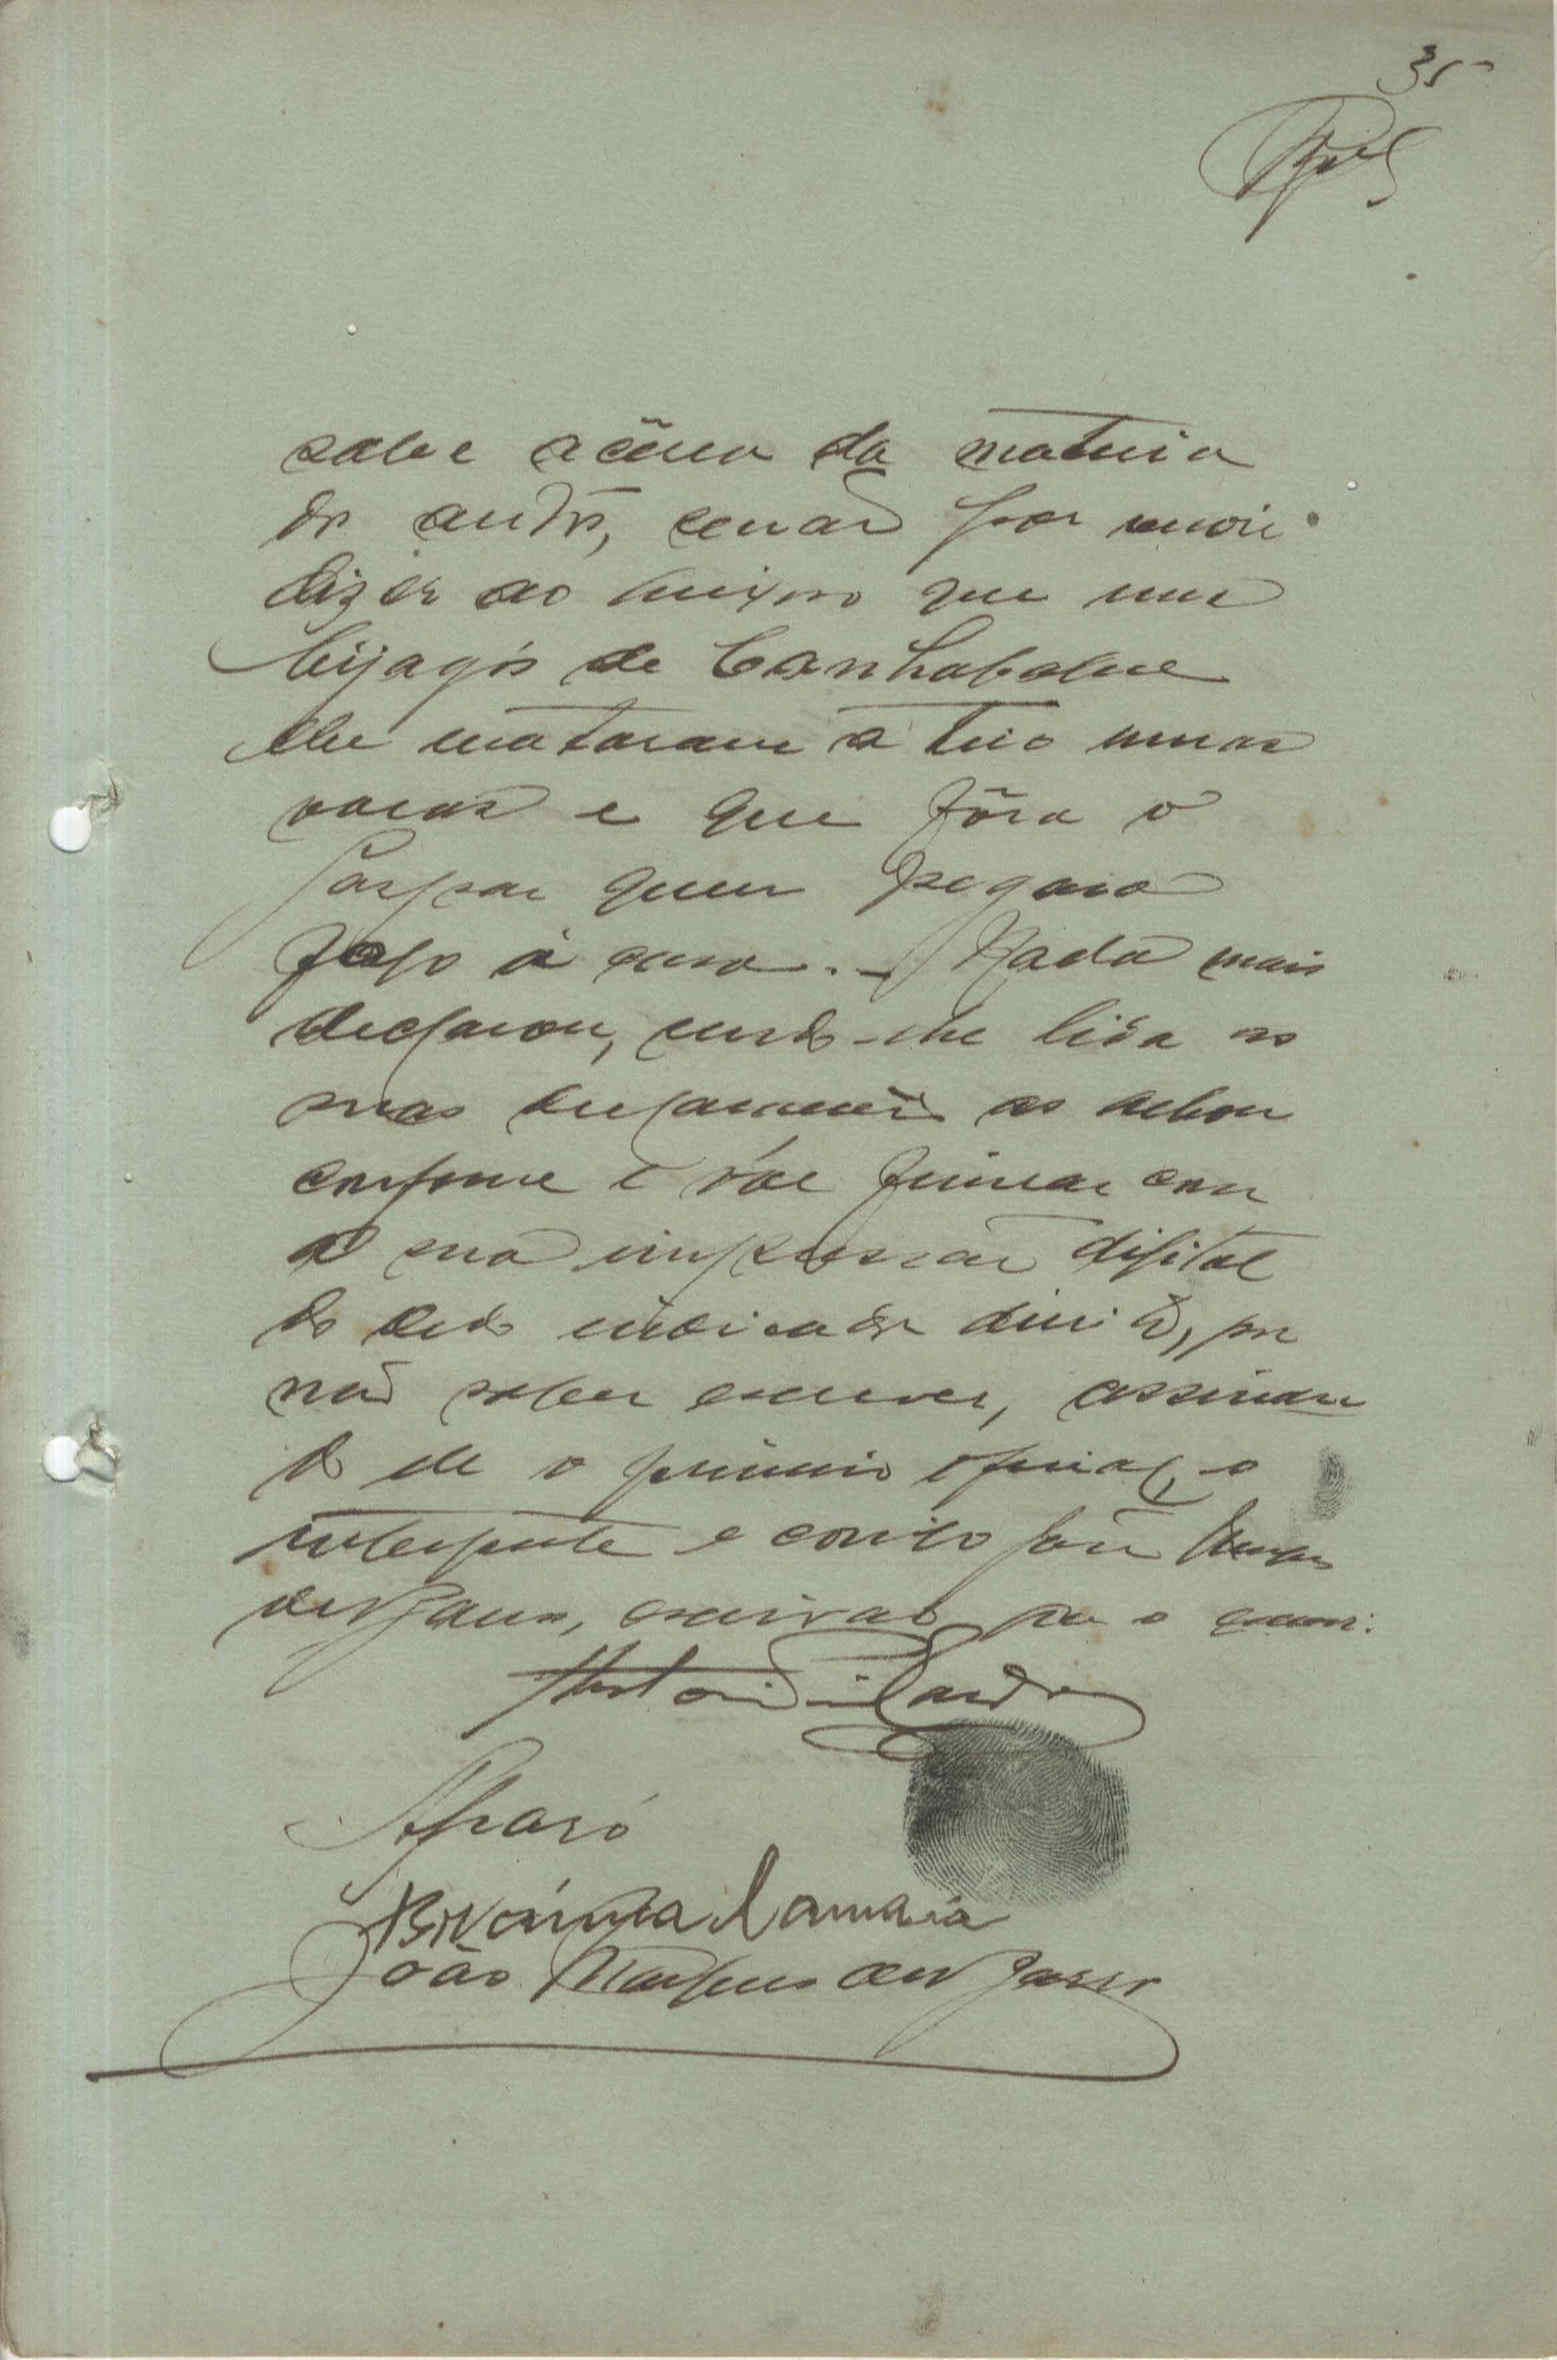 35
sabe acêrca da materia
do auto, senão por ouvir
dizer ao que uns
bijagós de Canhabaque
lhe mataram a tiro umas
vacas e que fôra o
Gaspar quem pegara
fogo á casa. - Nada mais
declarou, sendo-lhe lida as
suas declarações as achou
conforme e vae firmar com
a sua impressão digital
do dedo indicador direito, por
não saber escrever, assinan
do ele o primeiro oficial, o
interprete e comigo João
escrivão que o escrevi.
Aparó
Camará
João